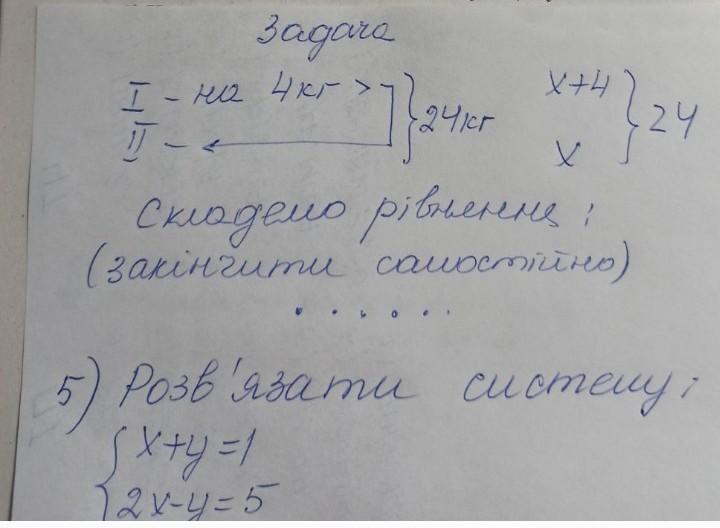 Задача
I - на 4кг > } 24кг x+4 } 24
II - ← x
Складемо рівняння:
(закінчити самостійно)
. . . . . .
5) Розв'язати систему:
{ x+y=1
2x-y=5